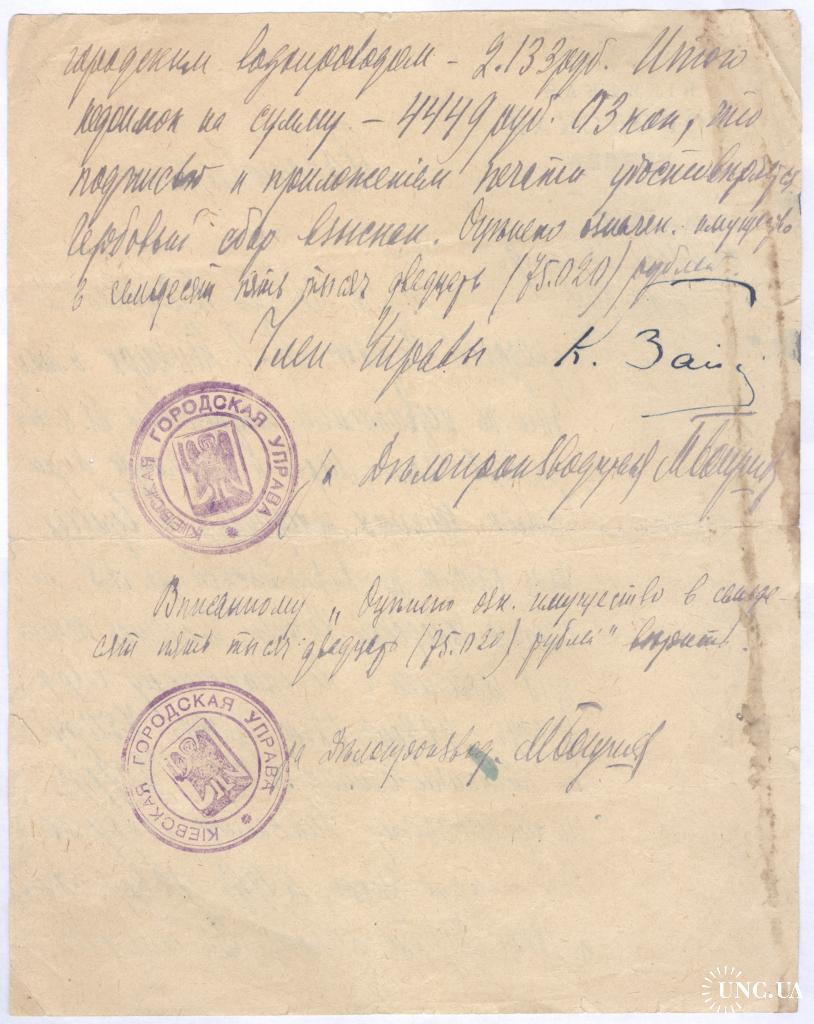 городским водопроводом – 2.133 руб. Итого
недоимок на сумму – 4449 руб. 03 коп, что
подписью и приложенiем печати удостоверяется.
Гербовый сбор взыскан. Оценено означен. имущество
в семьдесят пять тысяч двадцать (75.020) рублей.
Член Управы К.
КIЕВСКАЯ ГОРОДСКАЯ УПРАВА
Дѣлопроизводителя
Вписанному „Оценено озн. имущество в семьде-
сят пять тысяч двадцать (75.020) рублей" верить.
КIЕВСКАЯ ГОРОДСКАЯ УПРАВА
за Дѣлопроизвод.
UNC.UA